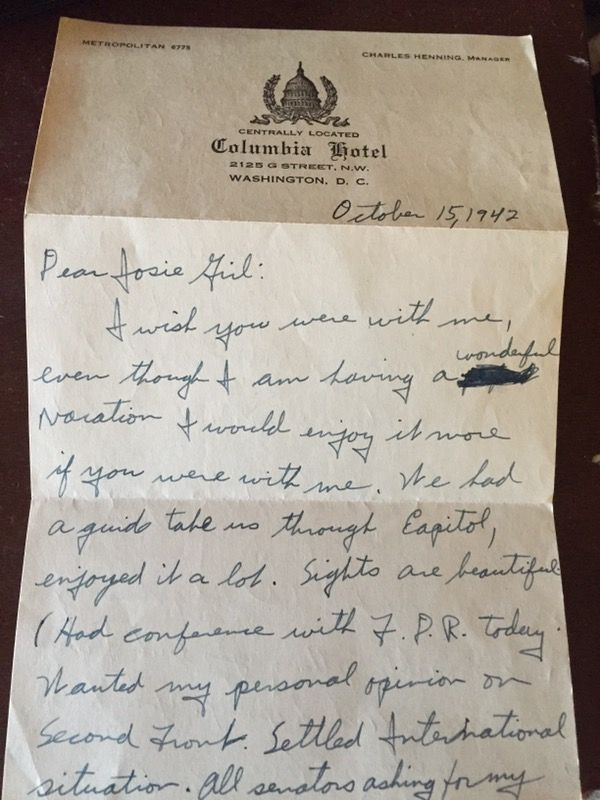 METROPOLITAN 6775
CHARLES HENNING, MANAGER
CENTRALLY LOCATED
Columbia Hotel
2125 G STREET, N.W.
WASHINGTON, D. C.
October 15, 1942
Dear Josie Girl:
I wish you were with me,
wonderful
even though I am having a
Vacation I would enjoy it more
if you were with me. We had
a guide take us through Capitol,
enjoyed it a lot. Sights are beautiful.
(Had conference with F. D. R. today.
Wanted my personal opinion on
Second Front. Settled International
situation. All senators asking for my